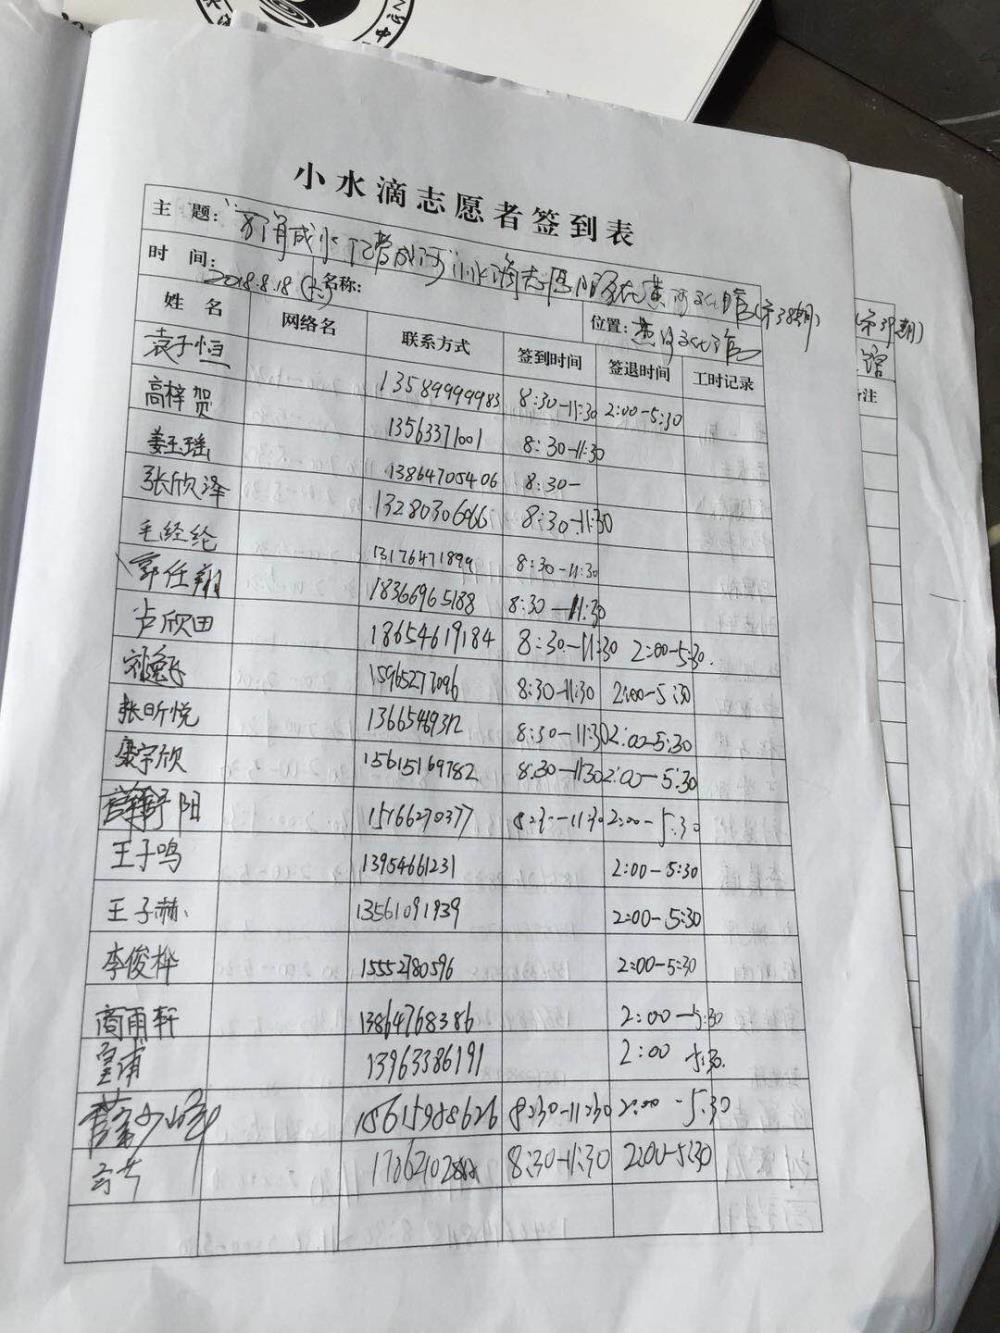 小水滴志愿者签到表
主 题： 小水滴志愿 黄河文化馆(第38期)
时 间： 2018.8.18 (六) 名称： 位置： 黄河文化馆
姓 名 网络名 联系方式 签到时间 签退时间 工时记录
袁子恒 13589999983 8:30-11:30 2:00-5:30
高梓贺 13563371001 8:30-11:30
姜玉瑶 13864705406 8:30-
张欣泽 13280306066 8:30-11:30
毛经纶 13176471899 8:30-11:30
郭任翔 18366965188 8:30-11:30
卢欣田 18654619184 8:30-11:30 2:00-5:30.
15965277096 8:30-11:30 2:00-5:30
张昕悦 13665469312 8:30-11:30 2:00-5:30
宇欣 15615169782 8:30-11:30 2:00-5:30
阳 15166270377 8:30-11:30 2:00-5:30
王子鸣 13954661231 2:00-5:30
王子赫 13561091939 2:00-5:30
李俊桦 15552780596 2:00-5:30
商雨轩 13864768386 2:00-5:30
13963386191 2:00 5:30.
15615988626 8:30-11:30 2:00-5:30
8:30-11:30 2:00-5:30
(第39期)
馆
备注